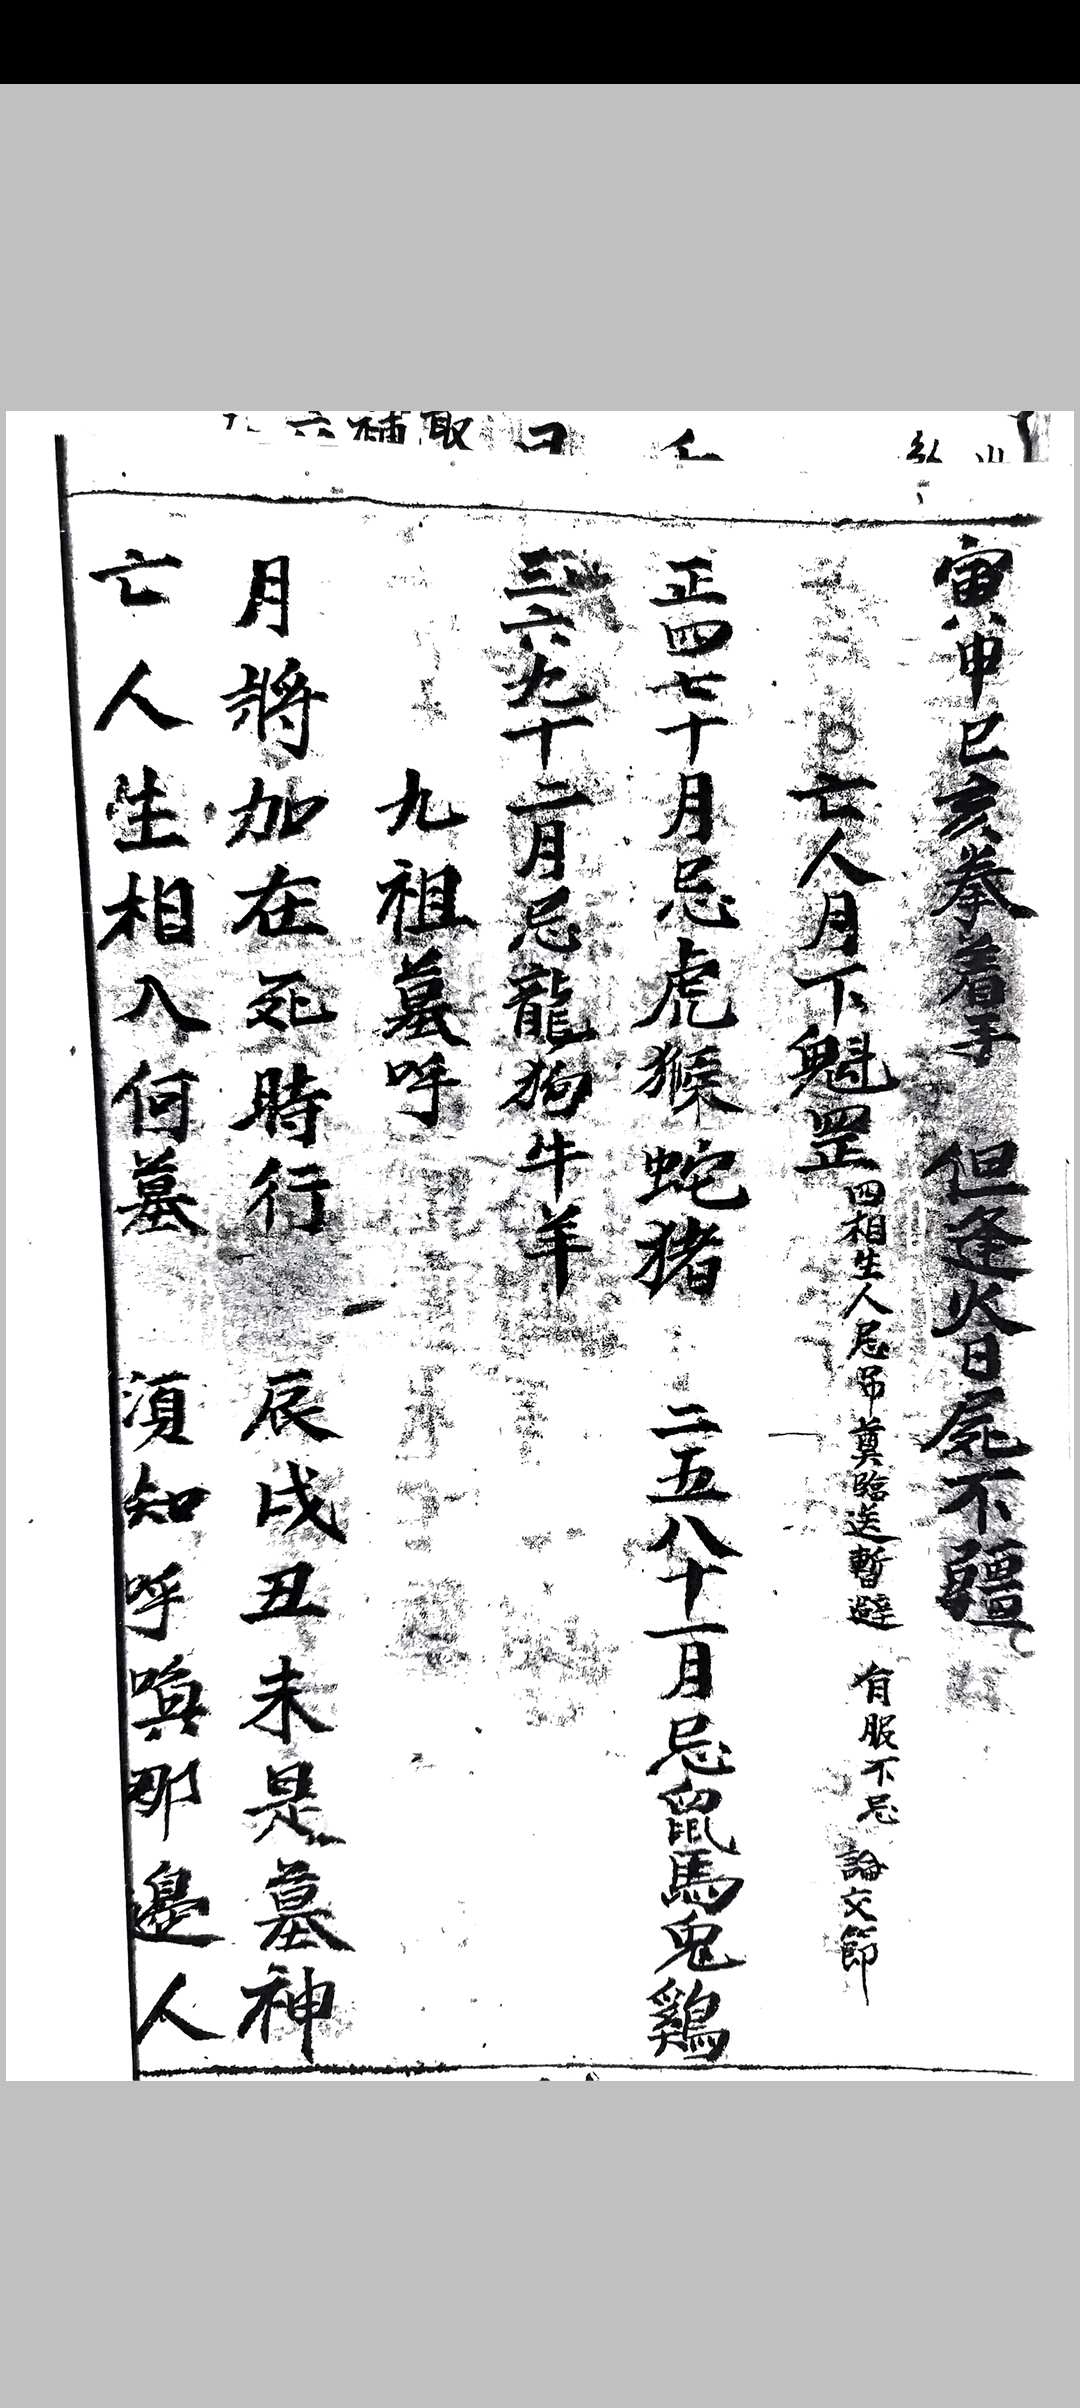 寅申巳亥拳着手　但逢火日屍不殭
亡人月下魁罡　四相生人忌吊奠臨送暫避　有服不忌　論交節
正四七十月忌虎猴蛇猪　二五八十一月忌鼠馬兔鷄
三六九十二月忌龍狗牛羊
九祖墓呼
月將加在死時行　辰戌丑未是墓神
亡人生相入何墓　須知呼喚那邉人